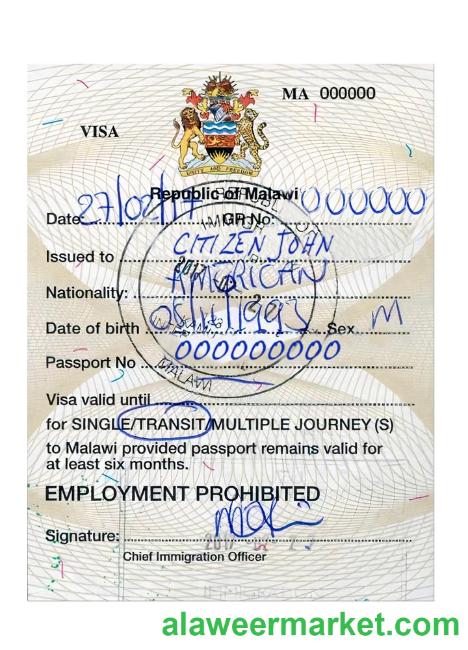 MA 000000
VISA
UNITE AND FREEDOM
Republic of Malawi
Date: 27/02/17 GR No: 000000
Issued to CITIZEN JOHN
Nationality: AMERICAN
Date of birth 05/11/1993 Sex M
Passport No 000000000
MALAWI
Visa valid until
for SINGLE/TRANSIT/MULTIPLE JOURNEY (S)
to Malawi provided passport remains valid for
at least six months.
EMPLOYMENT PROHIBITED
Signature:
Chief Immigration Officer
alaweermarket.com